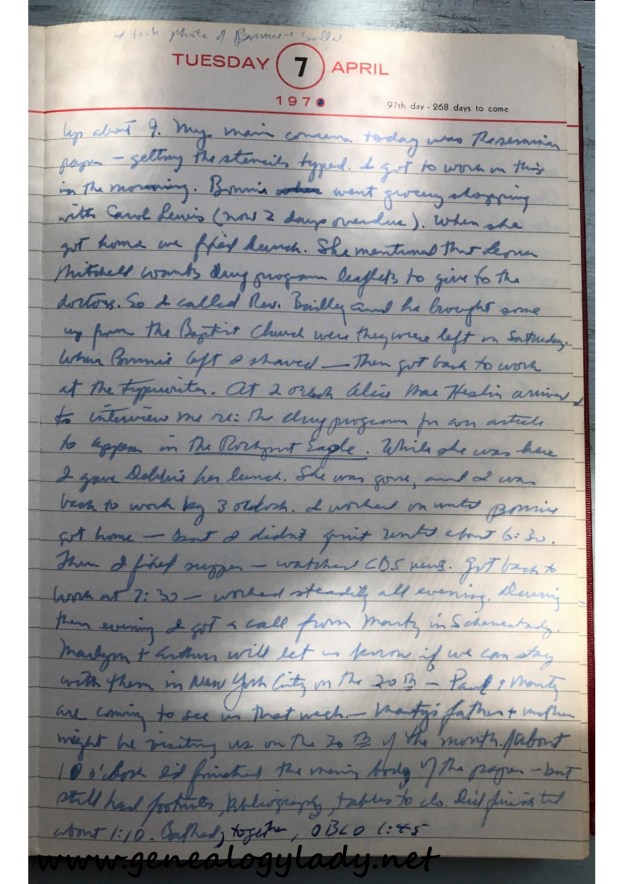 I took photo of Bonnie
TUESDAY 7 APRIL
197
97th day - 268 days to come
Up about 9. My main concern today was the seminar
paper – getting the stencils typed. I got to work on this
in the morning. Bonnie went grocery shopping
with Carol Lewis (now 2 days overdue). When she
got home we fixed lunch. She mentioned that
Mitchell wants drug program leaflets to give to the
doctors. So I called Rev. Bailey and he brought some
up from the Baptist Church were they were left on Saturday.
When Bonnie left I shaved – Then got back to work
at the typewriter. At 2 o'clock Alice Mae arrived
to interview me re: the drug program for an article
to appear in the Rockport Eagle. While she was here
I gave Debbie her lunch. She was gone, and I was
back to work by 3 o'clock. I worked on until Bonnie
got home – but I didn't quit until about 6:30.
Then I fixed supper – watched CBS news. Got back to
work at 7:30 – worked steadily all evening. During
the evening I got a call from Marty in Schenectady.
Marlynn + Arthur will let us know if we can stay
with them in New York City on the 20th – Paul + Marty
are coming to see us that week – Marty's father + mother
might be visiting us on the 20th of the month. About
10 o'clock I'd finished the main body of the paper – but
still had footnotes, bibliography, tables to do. Did finish
about 1:10. together, 1:45
www.genealogylady.net